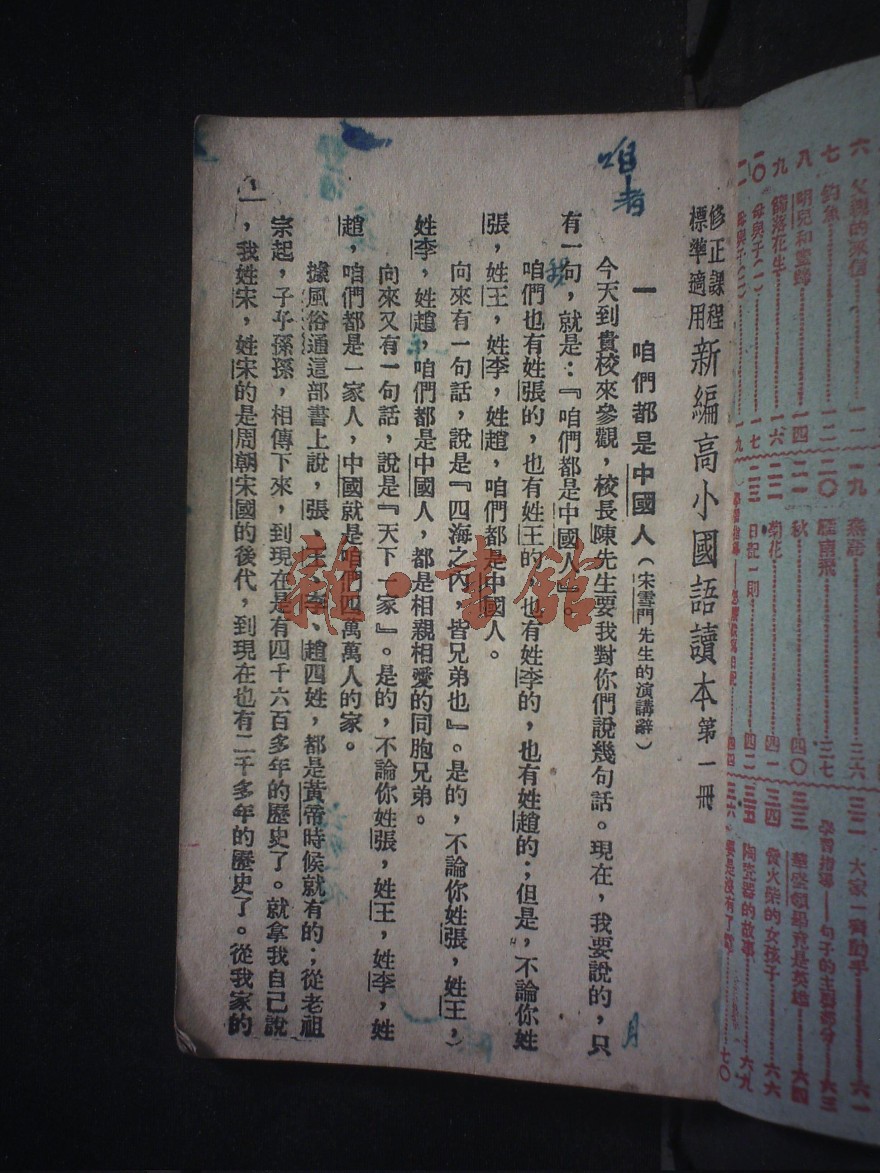 修正課程
標準適用
新編高小國語讀本第一冊
一 咱們都是中國人(宋雪門先生的演講辭)
今天到貴校來參觀,校長陳先生要我對你們說幾句話。現在,我要說的,只
有一句,就是:『咱們都是中國人』。
咱們也有姓張的,也有姓王的,也有姓李的,也有姓趙的;但是,不論你姓
張,姓王,姓李,姓趙,咱們都是中國人。
向來有一句話,說是『四海之內,皆兄弟也』。是的,不論你姓張,姓王,
姓李,姓趙,咱們都是中國人,都是相親相愛的同胞兄弟。
向來又有一句話,說是『天下一家』。是的,不論你姓張,姓王,姓李,姓
趙,咱們都是一家人,中國就是咱們四萬萬人的家。
據風俗通這部書上說,張、王、李、趙四姓,都是黃帝時候就有的;從老祖
宗起,子子孫孫,相傳下來,到現在是有四千六百多年的歷史了。就拿我自己說
,我姓宋,姓宋的是周朝宋國的後代,到現在也有二千多年的歷史了。從我家的
咱
月
雜·書館
六 父親的來信……一一
七 釣魚……一二
八 明兒和蜜蜂……一四
九 落花生……一六
一〇 母與子(一)……一七
一一 母與子(二)……一九
一九 燕語……三六
二〇 雁南飛……三七
二一 秋……四〇
二二 菊花……四一
二三 日記一則……四二
四四
三二 大家一齊動手……六一
學習指導——句子的主要部分……六三
三三 華盛頓畢竟是英雄……六四
三四 賣火柴的女孩子……六六
三五 陶瓷器的故事……六九
三六 要是沒有了……七〇